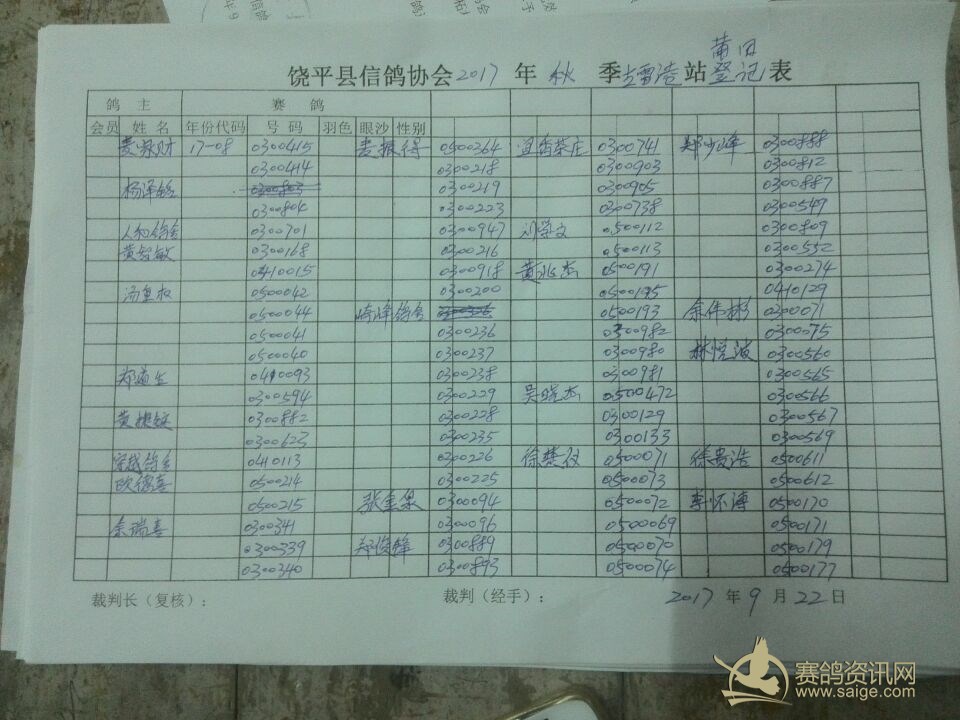 莆田
饶平县信鸽协会2017年秋季 站登记表
鸽主 赛鸽
会员姓名 年份代码 号码 羽色 眼沙 性别
17-08 0300415 麦振得 0500264 宜香茶庄 0300741 郑少峰 0300888
0300414 0300218 0300903 0300812
0300803 0300219 0300905 0300887
0300804 0300223 0300738 0300549
0300701 0300947 0500112 0300809
黄智敏 0300168 0300216 0500113 0300552
0410015 0300918 黄兆杰 0500191 0300274
0500042 0300200 0500195 0410129
0500044 0500193 余伟彬 0300071
0500041 0300236 0300982 0300075
0500040 0300237 0300980 林悦波 0300560
0410093 0300238 0300981 0300565
0300594 0300229 吴晓杰 0500472 0300566
0300882 0300228 0300129 0300567
0300623 0300235 0300133 0300569
0410113 0300226 0500071 徐贵浩 0500611
欧德喜 0500214 0300225 0500073 0500612
0500215 0300094 0500072 李怀涛 0500170
余瑞喜 0300341 0300096 0500069 0500171
0300339 郑俊锋 0300889 0500070 0500179
0300340 0300893 0500074 0500177
裁判长（复核）： 裁判（经手）： 2017年9月22日
赛鸽资讯网
www.saige.com